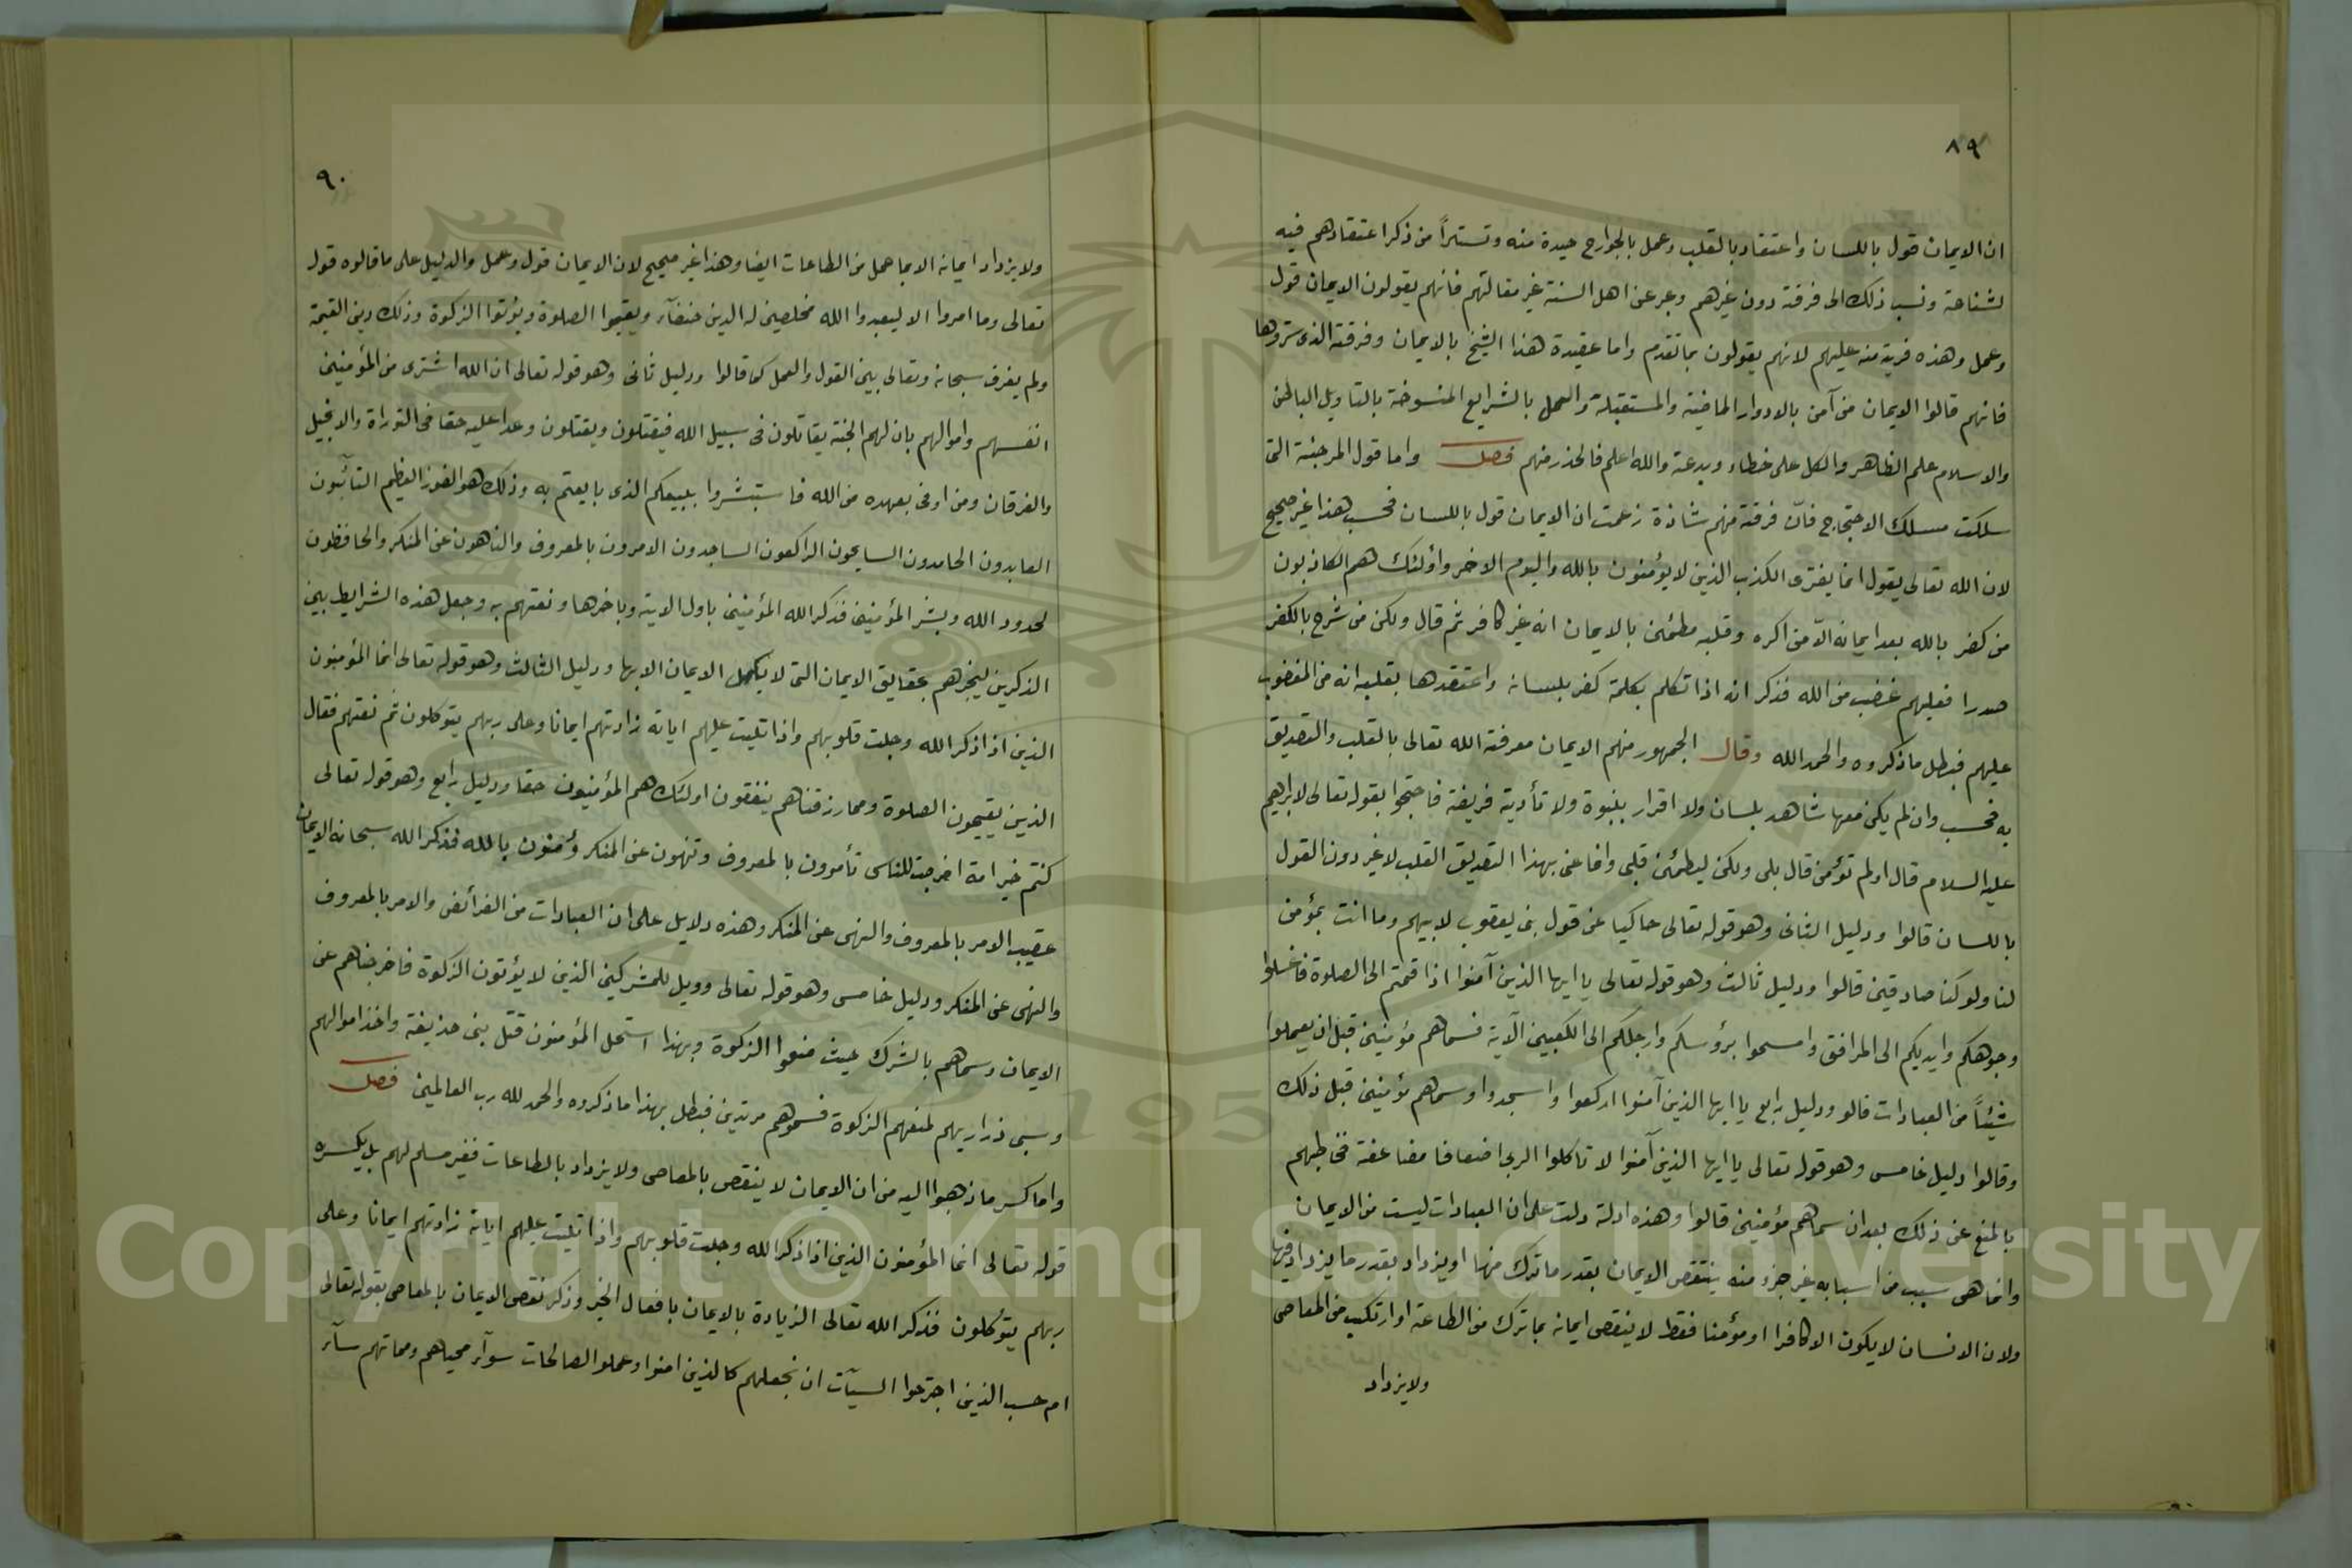 ٨٩
ان الايمان قول باللسان واعتقاد بالقلب وعمل بالجوارح حيدة منه وتستراً من ذكر اعتقادهم فيه
لشناعة ونسب ذلك الى فرقة دون غيرهم وعبر عن اهل السنة غير مقالتهم فانهم يقولون الايمان قول
وعمل وهذه فرية منه عليهم لانهم يقولون بما تقدم واما عقيدة هذا الشيخ بالايمان وفرقته الذى ستروها
فانهم قالوا الايمان من آمن بالادوار الماضية والمستقبلة والعمل بالشرايع المنسوخة بالتاويل الباطن
والاسلام علم الظاهر والكل على خطاء وبدعة والله اعلم فالحذر منهم فصل واما قول المرجئة التى
سلكت مسلك الاحتجاج فانّ فرقة منهم شاذة زعمت ان الايمان قول باللسان فحسب هذا غير صحيح
لان الله تعالى يقول انما يفترى الكذب الذين لا يؤمنون بالله واليوم الاخر واولئك هم الكاذبون
من كفر بالله بعد ايمانه الاّ من اكره وقلبه مطمئن بالايمان انه غير كافر ثم قال ولكن من شرح بالكفر
صدرا فعليهم غضب من الله فذكر انه اذا تكلم بكلمة كفر بلسانه واعتقدها بقلبه انه من المغضوب
عليهم فبطل ما ذكروه والحمد الله وقال الجمهور منهم الايمان معرفة الله تعالى بالقلب والتصديق
به فحسب وان لم يكن معها شاهد بلسان ولا اقرار بنبوة ولا تأدية فريضة فاحتجوا بقوله تعالى لابراهيم
عليه السلام قال اولم تؤمن قال بلى ولكن ليطمئن قلبى وانما عنى بهذا التصديق القلب لا غير دون القول
باللسان قالوا ودليل الثانى وهو قوله تعالى حاكيا عن قول بنى يعقوب لابيهم وما انت بمؤمن
لنا ولو كنا صادقين قالوا ودليل ثالث وهو قوله تعالى يا ايها الذين آمنوا اذا قمتم الى الصلوة فاغسلوا
وجوهكم وايديكم الى المرافق وامسحوا برؤسكم وارجلكم الى الكعبين الآية فسماهم مؤمنين قبل ان يعملوا
شيئاً من العبادات قالو ودليل رابع يا ايها الذين آمنوا اركعوا واسجدوا وسماهم مؤمنين قبل ذلك
وقالوا دليل خامس وهو قوله تعالى يا ايها الذين آمنوا لا تاكلوا الربا اضعافا مضاعفة فخاطبهم
بالمنع عن ذلك بعد ان سماهم مؤمنين قالوا وهذه ادلة دلت على ان العبادات ليست من الايمان
وانما هى سبب من اسبابه غير جزء منه ينتقص الايمان بقدر ما ترك منها او يزداد بقدر ما يزداد فيها
ولان الانسان لا يكون الا كافرا او مؤمنا فقط لا ينقص ايمانه بما ترك من الطاعة او ارتكب من المعاصى
ولا يزداد
٩٠
ولا يزداد ايمانه الا بما عمل من الطاعات ايضا وهذا غير صحيح لان الايمان قول وعمل والدليل على ما قالوه قول
تعالى وما امروا الا ليعبدوا الله مخلصين له الدين حنفآء ويقيموا الصلوة ويؤتوا الزكوة وذلك دين القيمة
ولم يفرق سبحانه وتعالى بين القول والعمل كما قالوا ودليل ثانى وهو قوله تعالى ان الله اشترى من المؤمنين
انفسهم واموالهم بان لهم الجنة يقاتلون فى سبيل الله فيقتلون ويقتلون وعدا عليه حقا فى التوراة والانجيل
والفرقان ومن اوفى بعهده من الله فاستبشروا ببيعكم الذى بايعتم به وذلك هو الفوز العظيم التآئبون
العابدون الحامدون السايحون الراكعون الساجدون الامرون بالمعروف والناهون عن المنكر والحافظون
لحدود الله وبشر المؤمنين فذكر الله المؤمنين باول الاية وباخرها ونعتهم به وجعل هذه الشرايط بين
الذكرين ليخبرهم بحقايق الايمان التى لا يكمل الايمان الا بها ودليل الثالث وهو قوله تعالى انما المؤمنون
الذين اذا ذكر الله وجلت قلوبهم واذا تليت عليهم اياته زادتهم ايمانا وعلى ربهم يتوكلون ثم نعتهم فقال
الذين يقيمون الصلوة ومما رزقناهم ينفقون اولئك هم المؤمنون حقا ودليل رابع وهو قوله تعالى
كنتم خير امة اخرجت للناس تأمرون بالمعروف وتنهون عن المنكر وتؤمنون بالله فذكر الله سبحانه الايمان
عقيب الامر بالمعروف والنهى عن المنكر وهذه دلايل على ان العبادات من الفرآئض والامر بالمعروف
والنهى عن المنكر ودليل خامس وهو قوله تعالى وويل للمشركين الذين لا يؤتون الزكوة فاخرجناهم عن
الايمان وسماهم بالشرك حيث منعوا الزكوة وبهذا استحل المؤمنون قتل بنى حذيفة واخذ اموالهم
وسبى ذراريهم لمنعهم الزكوة فسموهم مرتدين فبطل بهذا ما ذكروه والحمد لله رب العالمين فصل
واما كسر ما ذهبوا اليه من ان الايمان لا ينقص بالمعاصى ولا يزداد بالطاعات فغير مسلم لهم بل يكسره
قوله تعالى انما المؤمنون الذين اذا ذكر الله وجلت قلوبهم واذا تليت عليهم اياته زادتهم ايمانا وعلى
ربهم يتوكلون فذكر الله تعالى الزيادة بالايمان بافعال الخير وذكر نقص الايمان بالمعاصى بقوله تعالى
ام حسب الذين اجترحوا السيآت ان نجعلهم كالذين امنوا وعملوا الصالحات سوآء محياهم ومماتهم سآء
Copyright © King Saud University
195